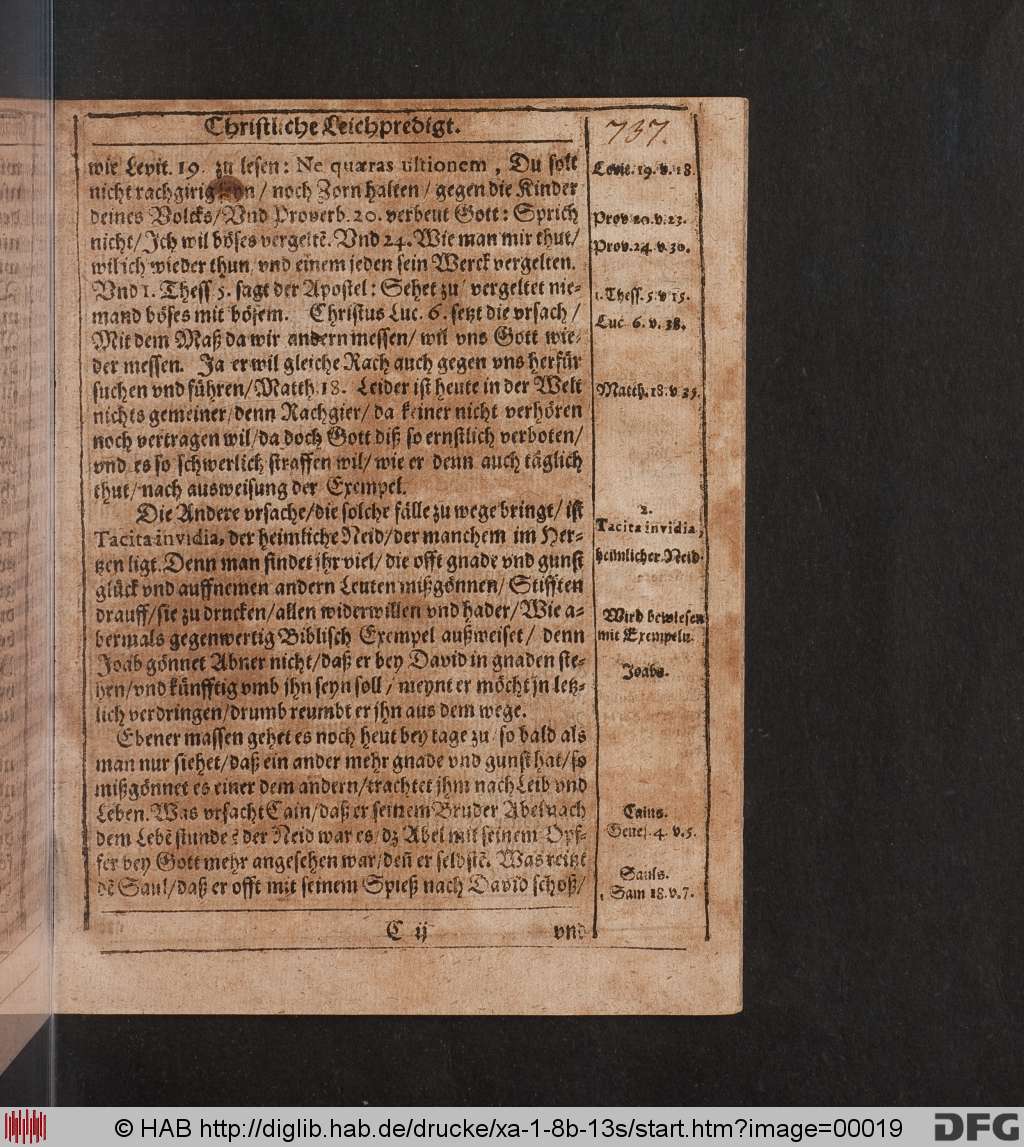 Christliche Leichpredigt.
737.
wie Levit. 19. zu lesen: Ne quæras ultionem, Du solt
nicht rachgirig / noch Zorn halten / gegen die Kinder
deines Volcks / Vnd Proverb. 20. verbeut Gott: Sprich
nicht / Ich wil böses vergeltē. Vnd 24. Wie man mir thut /
wil ich wieder thun / vnd einem jeden sein Werck vergelten.
Vnd 1. Thess 5. sagt der Apostel: Sehet zu / vergeltet nie-
mand böses mit bösem. Christus Luc. 6. setzt die vrsach /
Mit dem Maß da wir andern messen / wil vns Gott wie-
der messen. Ja er wil gleiche Rach auch gegen vns herfür
suchen vnd führen / Matth. 18. Leider ist heute in der Welt
nichts gemeiner / denn Rachgier / da keiner nicht verhören
noch vertragen wil / da doch Gott diß so ernstlich verboten /
vnd es so schwerlich straffen wil / wie er denn auch täglich
thut / nach ausweisung der Exempel.
Die Andere vrsache / die solche fälle zu wege bringt / ist
Tacita invidia, der heimliche Neid / der manchem im Her-
tzen ligt. Denn man findet jhr viel / die offt gnade vnd gunst
glück vnd auffnemen andern Leuten mißgönnen / Stifften
drauff / sie zu drucken / allen widerwillen vnd hader / Wie a-
bermals gegenwertig Biblisch Exempel außweiset / denn
Joab gönnet Abner nicht / daß er bey David in gnaden ste-
hen / vnd künfftig vmb jhn seyn soll / meynt er möcht jn letz-
lich verdringen / drumb reumbt er jhn aus dem wege.
Ebener massen gehet es noch heut bey tage zu / so bald als
man nur siehet / daß ein ander mehr gnade vnd gunst hat / so
mißgönnet es einer dem andern / trachtet jhm nach Leib vnd
Leben. Was vrsacht Cain / daß er seinem Bruder Abel nach
dem Lebē stunde? der Neid war es / dz Abel mit seinem Opf-
fer bey Gott mehr angesehen war / deñ er selbstē. Was reitzt
dē Saul / daß er offt mit seinem Spieß nach David schoß /
C ij
vnd
Levit. 19. v. 18.
Prov 20. v. 23.
Prov. 24. v. 30.
1. Thess. 5. v 15.
Luc 6. v. 38.
Matth. 18. v 35.
2.
Tacita invidia,
heimlicher Neid.
Wird bewiesen
mit Exempeln.
Joabs.
Cains.
Genes. 4. v. 5.
Sauls.
1. Sam 18. v. 7.
© HAB http://diglib.hab.de/drucke/xa-1-8b-13s/start.htm?image=00019
DFG